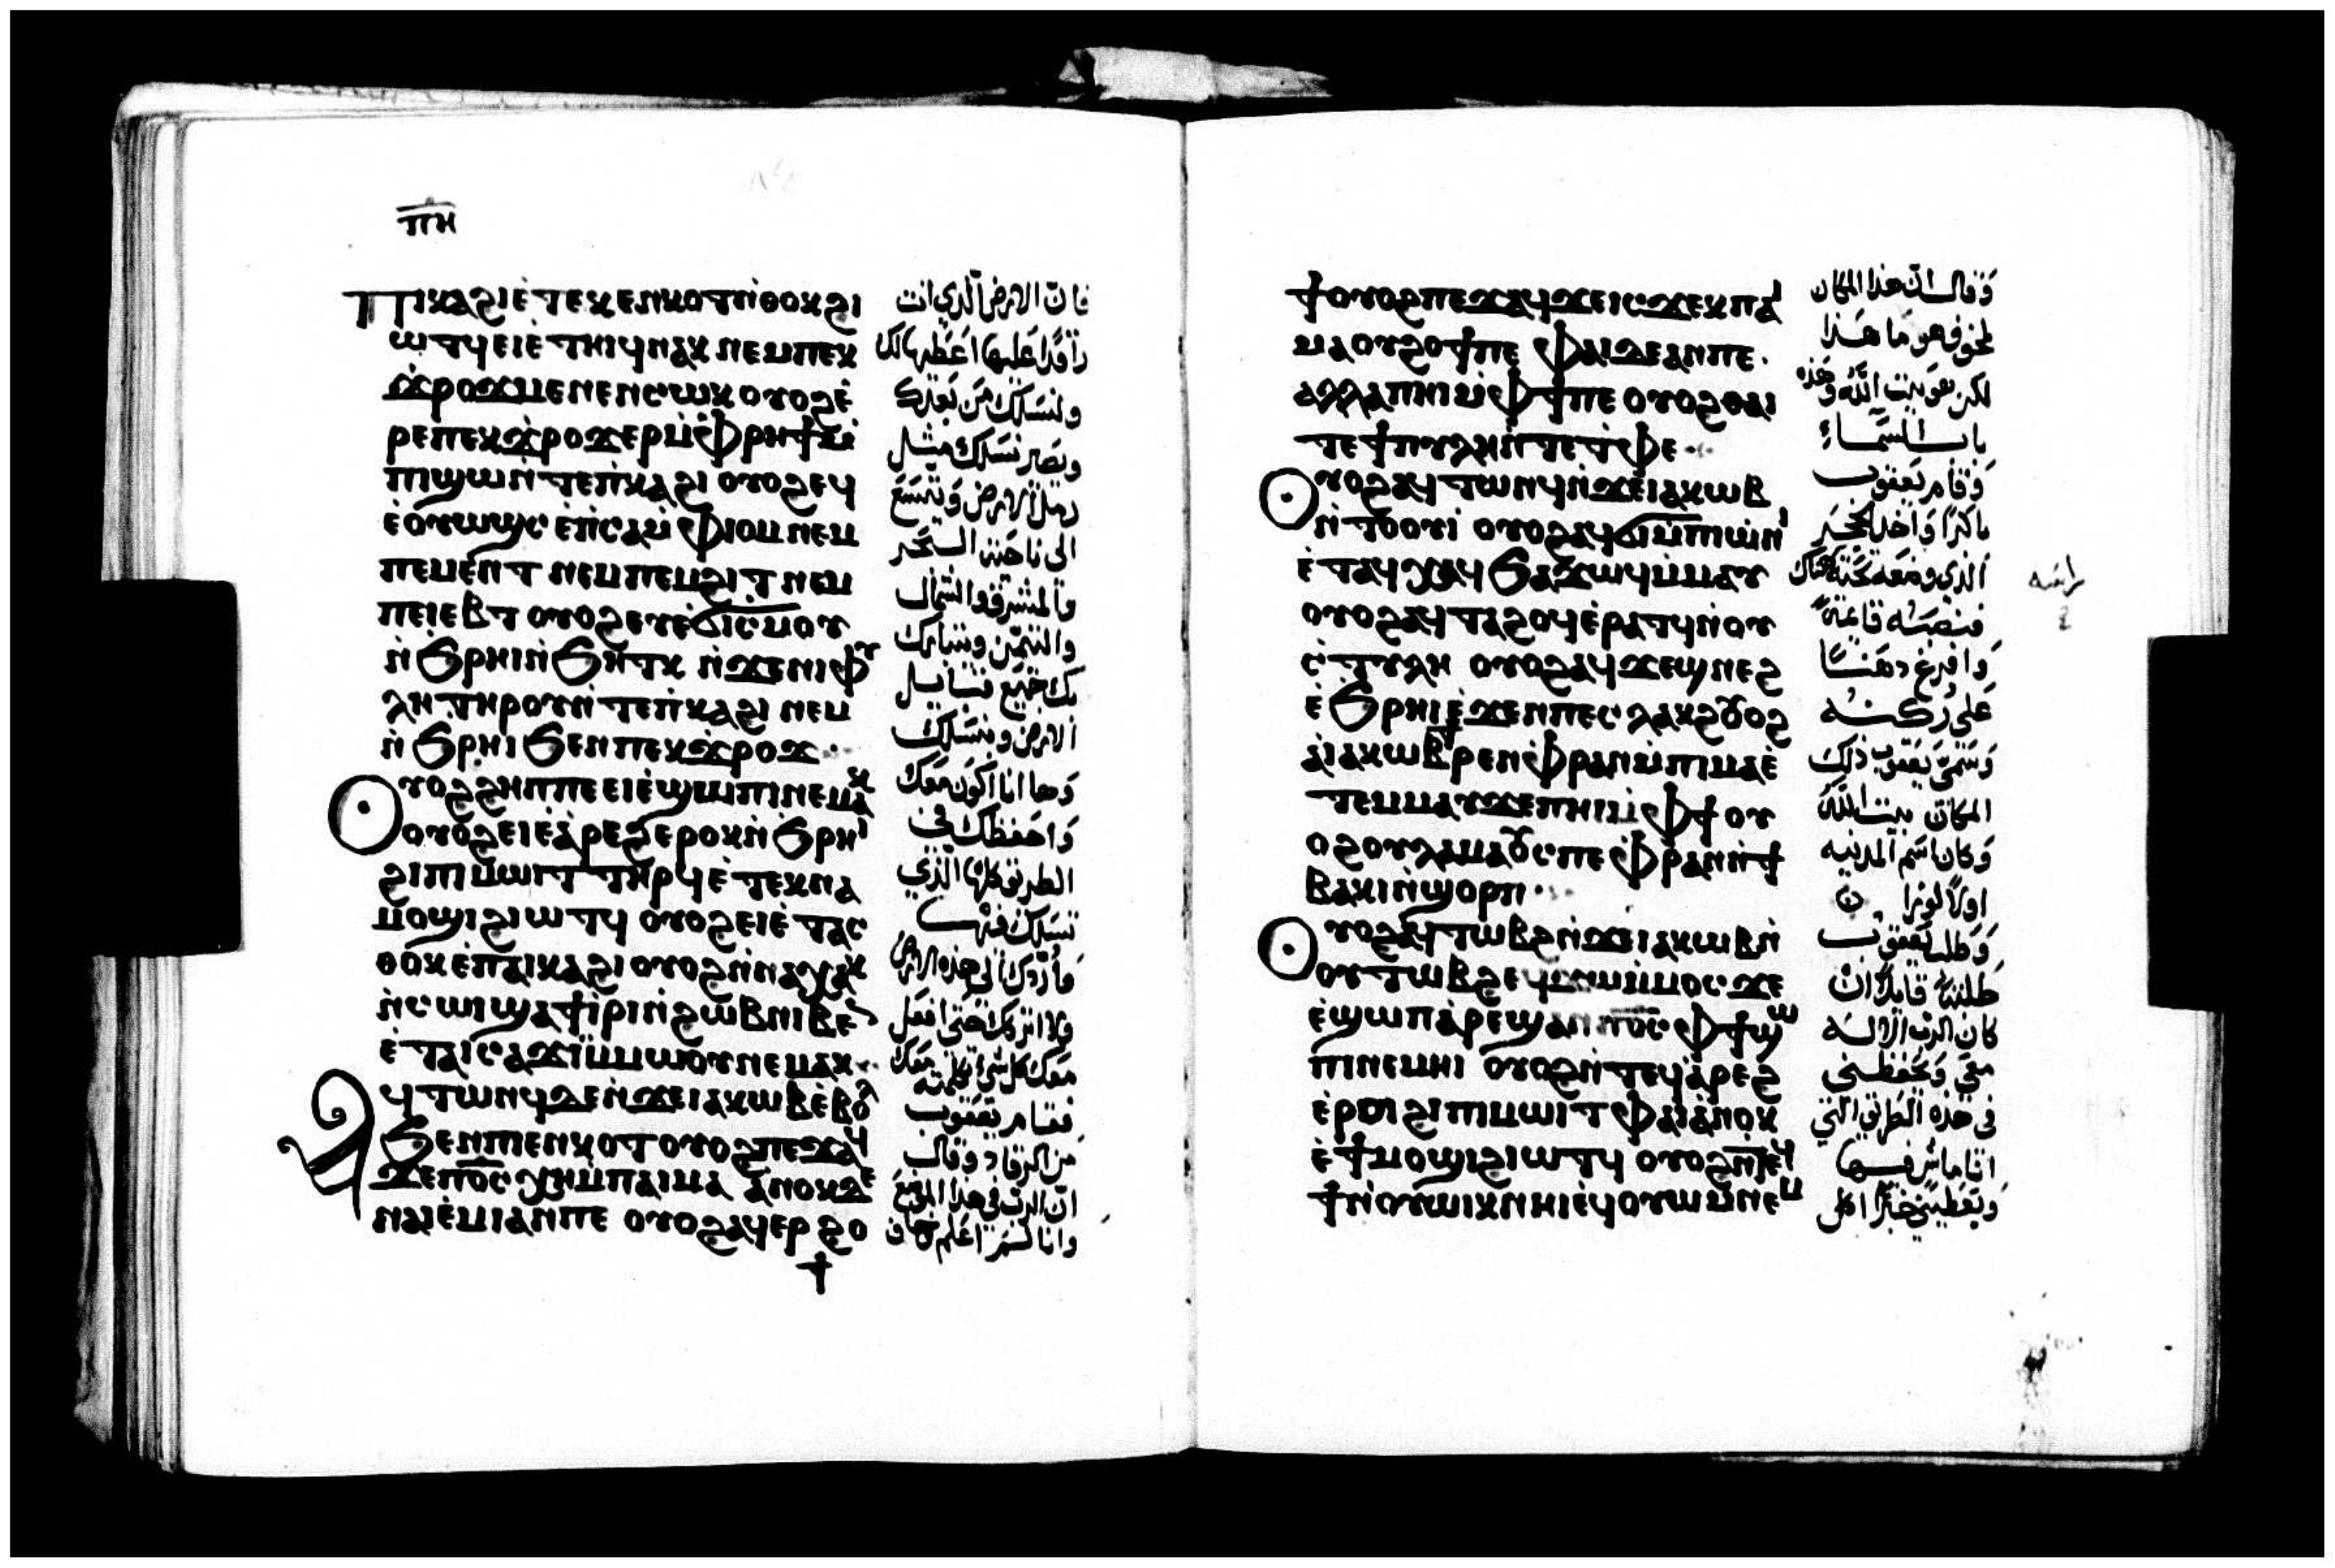 ⲡⲏ
Ⲡⲓⲕⲁϩⲓ ⲉ̀ⲧⲉⲕⲉⲛⲕⲟⲧ ⲛ̀ⲑⲟⲕ ϩⲓ
ⲱⲧϥ ⲉⲓⲉ̀ⲧⲏⲓϥ ⲛⲁⲕ ⲛⲉⲙ ⲡⲉⲕ
ϫ̀ⲣⲟϫ ⲙⲉⲛⲉⲛⲥⲱⲕ ⲟⲩⲟϩ ⲉ̀
ⲣⲉ ⲡⲉⲕϫ̀ⲣⲟϫ ⲉⲣ ⲙ̀ⲫⲣⲏϯ ⲙ̀
ⲡⲓϣⲱ ⲛ̀ⲧⲉ ⲡ̀ⲕⲁϩⲓ ⲟⲩⲟϩ ⲉϥ
ⲉ̀ⲟⲩⲱϣⲥ ⲉ̀ⲡ̀ⲥⲁ ⲙ̀ⲫⲓⲟⲙ ⲛⲉⲙ
ⲡⲉⲙⲉⲛⲧ ⲛⲉⲙ ⲡⲉⲙϩⲓⲧ ⲛⲉⲙ
ⲡⲉⲓⲉⲃⲧ ⲟⲩⲟϩ ⲉⲩⲉ̀ϭⲓⲥⲙⲟⲩ
ⲛ̀ϧⲣⲏⲓ ⲛ̀ϧⲏⲧⲕ ⲛ̀ϫⲉ ⲛⲓⲫⲩ
ⲗⲏ ⲧⲏⲣⲟⲩ ⲛ̀ⲧⲉ ⲡ̀ⲕⲁϩⲓ ⲛⲉⲙ
ⲛ̀ϧⲣⲏⲓ ϧⲉⲛ ⲡⲉⲕϫ̀ⲣⲟϫ
Ⲟⲩⲟϩ ϩⲏⲡⲡⲉ ⲉⲓⲉ̀ϣⲱⲡⲓ ⲛⲉⲙⲁⲕ
ⲟⲩⲟϩ ⲉⲓⲉ̀ⲁ̀ⲣⲉϩ ⲉⲣⲟⲕ ⲛ̀ϧⲣⲏⲓ
ϩⲓ ⲡⲓⲙⲱⲓⲧ ⲧⲏⲣϥ ⲉ̀ⲧⲉⲕⲛⲁ
ⲙⲟϣⲓ ϩⲓⲱⲧϥ ⲟⲩⲟϩ ⲉⲓⲉ̀ⲧⲁⲥ
ⲑⲟⲕ ⲉ̀ⲡⲁⲓⲕⲁϩⲓ ⲟⲩⲟϩ ⲛ̀ⲛⲁⲭⲁⲕ
ⲛ̀ⲥⲱⲓ ϣⲁϯⲓ̀ⲣⲓ ⲛ̀ϩⲱⲃ ⲛⲓⲃⲉⲛ
ⲉ̀ⲧⲁⲓⲥⲁϫⲓ ⲙ̀ⲙⲱⲟⲩ ⲛⲉⲙⲁⲕ
Ⲁϥⲧⲱⲛϥ ⲇⲉ ⲛ̀ϫⲉ ⲓⲁⲕⲱⲃ ⲉ̀ⲃⲟⲗ
ϧⲉⲛ ⲡⲉⲛⲕⲟⲧ ⲟⲩⲟϩ ⲡⲉϫⲁϥ
ϫⲉ ⲡⲟ̅ⲥ̅ ⲭⲏ ⲙ̀ⲡⲁⲓⲙⲁ ⲁⲛⲟⲕ ⲇⲉ
ⲛⲁⲓⲉ̀ⲙⲓ ⲁⲛ ⲡⲉ ⲟⲩⲟϩ ⲁϥⲉⲣϩⲟ
ϯ
فان الارض الذي انت
راقدا عليها اعطيها لك
ولنسلك من بعدك
ويصير نسلك مثل
رمل الارض ويتسع
الى ناحية البحر
والمشرق والشمال
والتيمن ويتبارك
بك جميع قبايل
الارض وبنسلك
وها انا اكون معك
واحفظك في
الطريق كلها الذي
تسلك فيها
واردك الى هذه الارض
ولا اتركك حتى افعل
معك كل شي كلمته معك
فقام يعقوب
من الرقاد وقال
ان الرب في هذا الموضع
وانا لم اعلم فخاف
ϯ ⲟⲩⲟϩ ⲡⲉϫⲁϥ ϫⲉ ⲓⲥϫⲉⲕ ⲡⲁⲓ
ⲙⲁ ⲟⲩϩⲟϯ ⲡⲉ ⲫⲁⲓ ⲇⲉ ⲁⲛ ⲡⲉ
ⲁⲗⲗⲁ ⲡⲏⲓ ⲙ̀ⲫϯ ⲡⲉ ⲟⲩⲟϩ ⲑⲁⲓ
ⲧⲉ ϯⲡⲩⲗⲏ ⲛ̀ⲧⲉ ⲧ̀ⲫⲉ
Ⲟⲩⲟϩ ⲁϥⲧⲱⲛϥ ⲛ̀ϫⲉ ⲓⲁⲕⲱⲃ
ⲛ̀ⲧⲟⲟⲩⲓ̀ ⲟⲩⲟϩ ⲁϥϭⲓ ⲙ̀ⲡⲱ̀ⲛⲓ
ⲉ̀ⲧⲁϥⲭⲁϥ ϧⲁϫⲱϥ ⲙ̀ⲙⲁⲩ
ⲟⲩⲟϩ ⲁϥⲧⲁϩⲟϥ ⲉ̀ⲣⲁⲧϥ ⲛ̀ⲟⲩ
ⲥ̀ⲧⲩⲗⲏ ⲟⲩⲟϩ ⲁϥϫⲉϣ ⲛⲉϩ
ⲉ̀ϧⲣⲏⲓ ⲉ̀ϫⲉⲛ ⲡⲉⲥⲗⲁⲕϩ ⲟⲩⲟϩ
ⲁ̀ ⲓⲁⲕⲱⲃ ⲣⲉⲛ ⲫⲣⲁⲛ ⲙ̀ⲡⲓⲙⲁ ⲉ̀
ⲧⲉⲙⲙⲁⲩ ϫⲉ ⲡⲏⲓ ⲙ̀ⲫϯ ⲟⲩ
ⲟϩ ⲟⲩⲗⲁⲙⲁⲟⲩⲥ ⲡⲉ ⲫⲣⲁⲛ ⲛ̀ϯ
ⲃⲁⲕⲓ ⲛ̀ϣⲟⲣⲡ
Ⲟⲩⲟϩ ⲁϥⲧⲱⲃϩ ⲛ̀ϫⲉ ⲓⲁⲕⲱⲃ ⲛ̀
ⲟⲩⲧⲱⲃϩ ⲉϥϫⲱ ⲙ̀ⲙⲟⲥ ϫⲉ
ⲉ̀ϣⲱⲡ ⲁ̀ⲣⲉϣⲁⲛ ⲡⲟ̅ⲥ̅ ⲫϯ ϣⲱ
ⲡⲓ ⲛⲉⲙⲏⲓ ⲟⲩⲟϩ ⲛ̀ⲧⲉϥⲁ̀ⲣⲉϩ
ⲉ̀ⲣⲟⲓ ϩⲓ ⲡⲓⲙⲱⲓⲧ ⲫⲁⲓ ⲁ̀ⲛⲟⲕ
ⲉ̀ϯⲙⲟϣⲓ ϩⲓⲱⲧϥ ⲟⲩⲟϩ ⲛ̀ⲧⲉϥ
ϯ ⲛ̀ⲟⲩⲱⲓⲕ ⲛⲏⲓ ⲉ̀ϥⲟⲩⲱⲙ ⲛⲉⲙ
وقال ان هذا المكان
لمخوف هو ما هذا
لكن هو بيت الله وهذه
باب السماء
وقام يعقوب
باكرا واخذ الحجر
الذي وضعه تحت هناك
راسه
فنصبه قائمة
وافرغ دهنا
على ركنه
وسمى يعقوب ذلك
المكان بيت الله
وكان اسم المدينه
اولا لوزا
وطلب يعقوب
طلبة قايلا ان
كان الرب الاله
معي ويحفظني
في هذه الطريق التي
انا ماش فيها
ويعطيني خبزا اكل